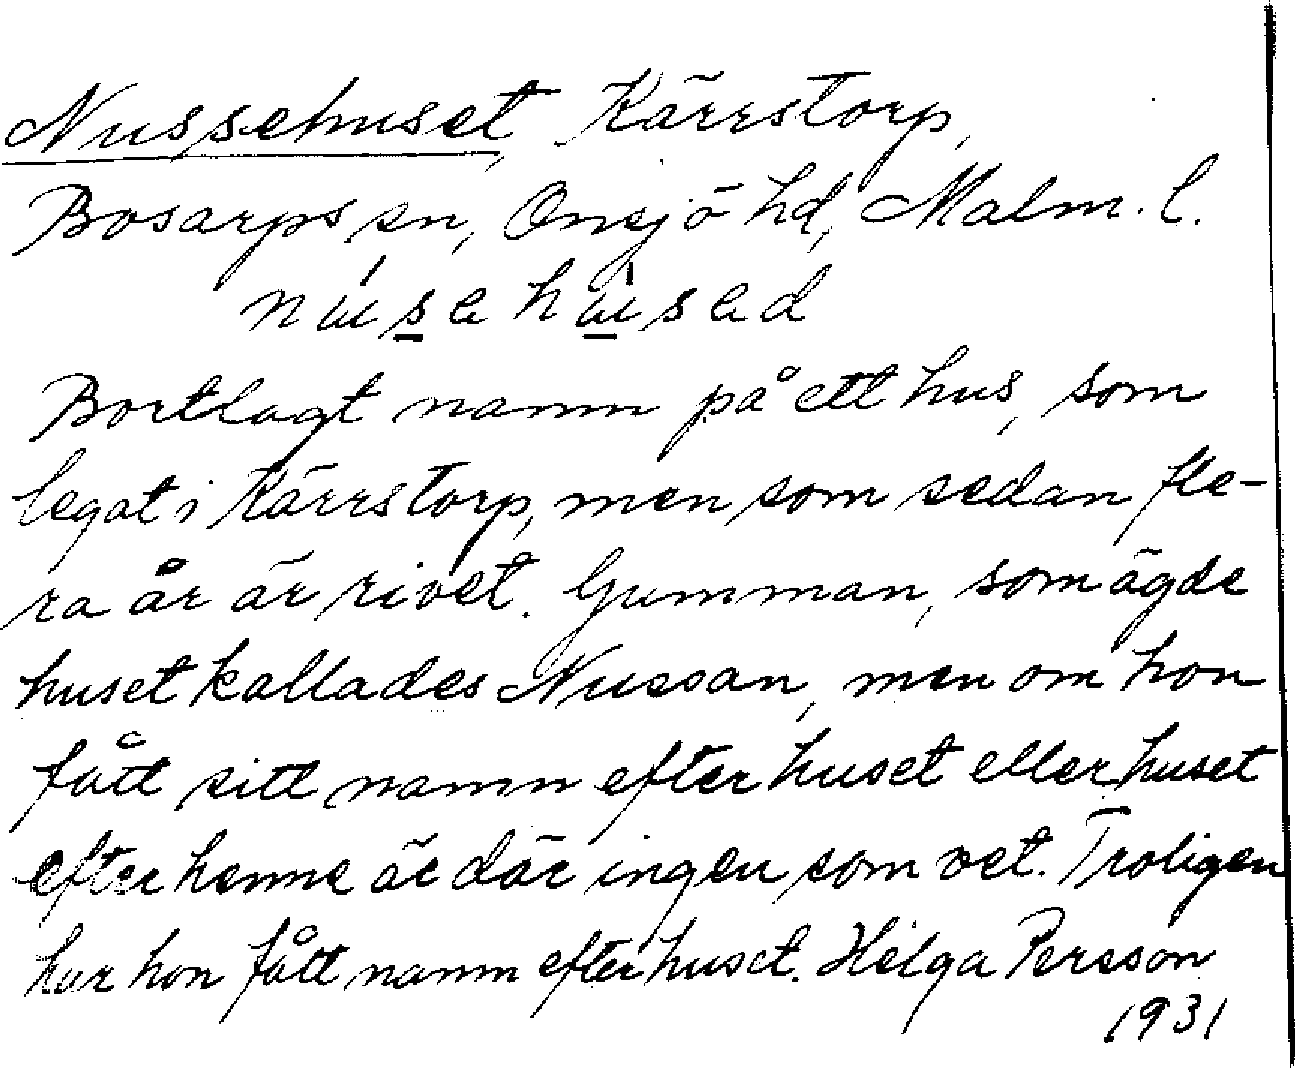 Nussehuset, Kärrstorp,
Bosarps sn, Onsjö hd, Malm. l.
Bortlagt namn på ett hus, som
legat i Kärrstorp, men som sedan fle-
ra år är rivet. Gumman, som ägde
huset kallades Nussan, men om hon
fått sitt namn efter huset eller huset
efter henne är där ingen som vet. Troligen
har hon fått namn efter huset. Helga Persson
1931